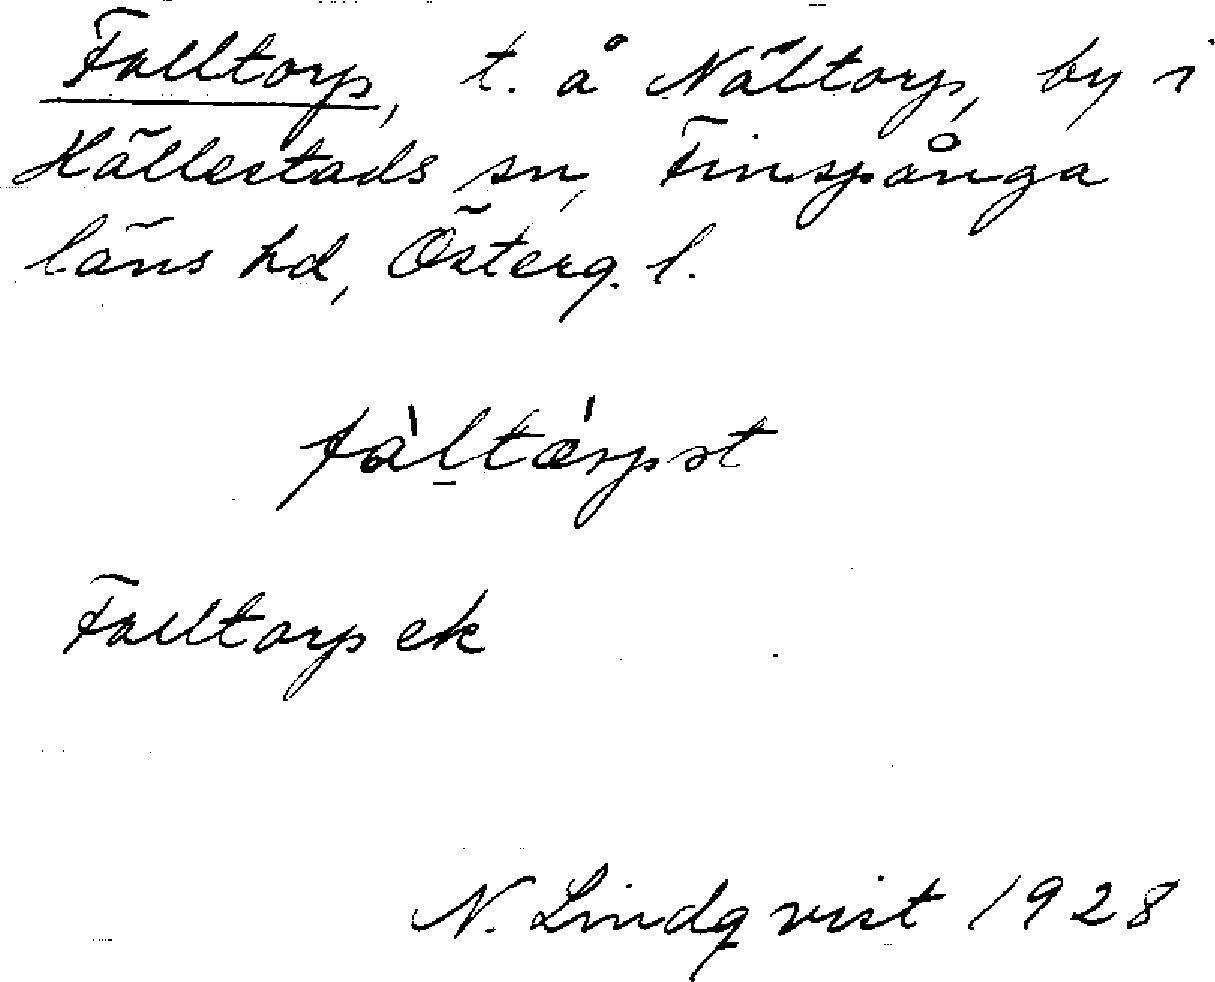 Falltorp, t. å Nältorp, by i
Hällestads sn, Finspånga
läns hd, Österg. l.
fàltǽrpst
Falltorp ek
N. Lindqvist 1928